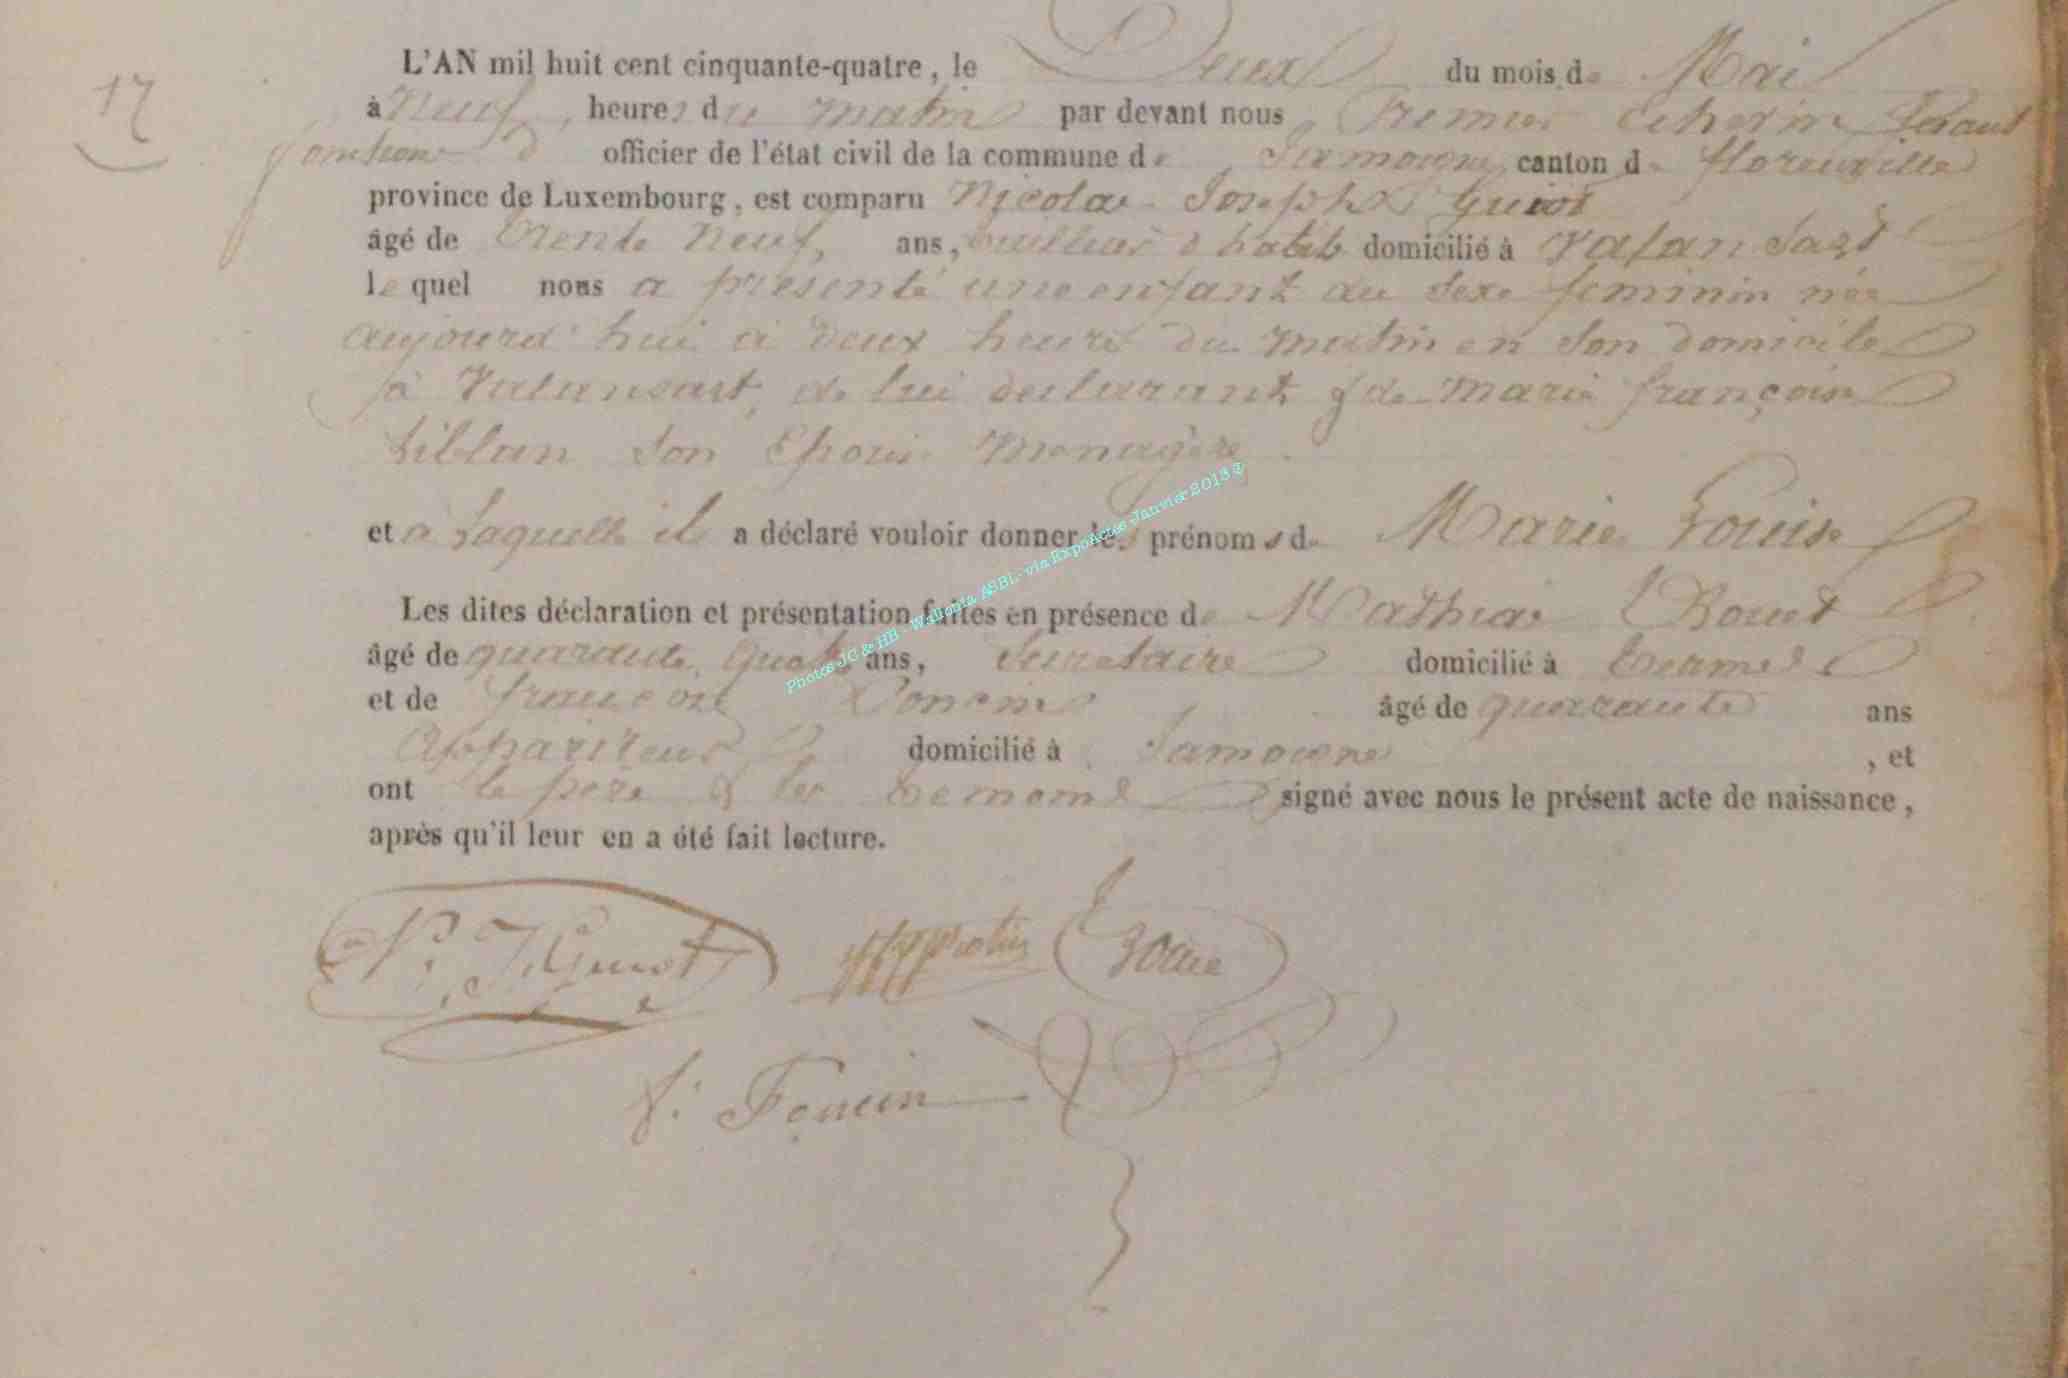 17
L'AN mil huit cent cinquante-quatre, le Deux du mois de Mai
à Neuf heures du matin par devant nous Premier Echevin fesant
fonctions d officier de l'état civil de la commune de Jamoigne, canton de florenville
province de Luxembourg, est comparu Nicolas Joseph Guiot
âgé de trente Neuf ans, tailleur d'habits domicilié à Valansart
lequel nous a présenté une enfant du sexe feminin née
aujourd'hui à deux heures du matin en son domicile
à Valansart, de lui declarant & de Marie françoise
son Epouse Menagère
et a Laquelle il a déclaré vouloir donner les prénoms de Marie Louise
Les dites déclaration et présentation faites en présence de Mathias
âgé de quarante Quatre ans, Secretaire domicilié à Termes
et de françois Poncin âgé de quarante ans
Appariteur domicilié à Jamoigne, et
ont le pere & les temoins signé avec nous le présent acte de naissance,
après qu'il leur en a été fait lecture.
N. J. Guiot
f. Poncin
Photos JC & HB - Wallonia ASBL - via ExpoActes Janvier 2013 ©